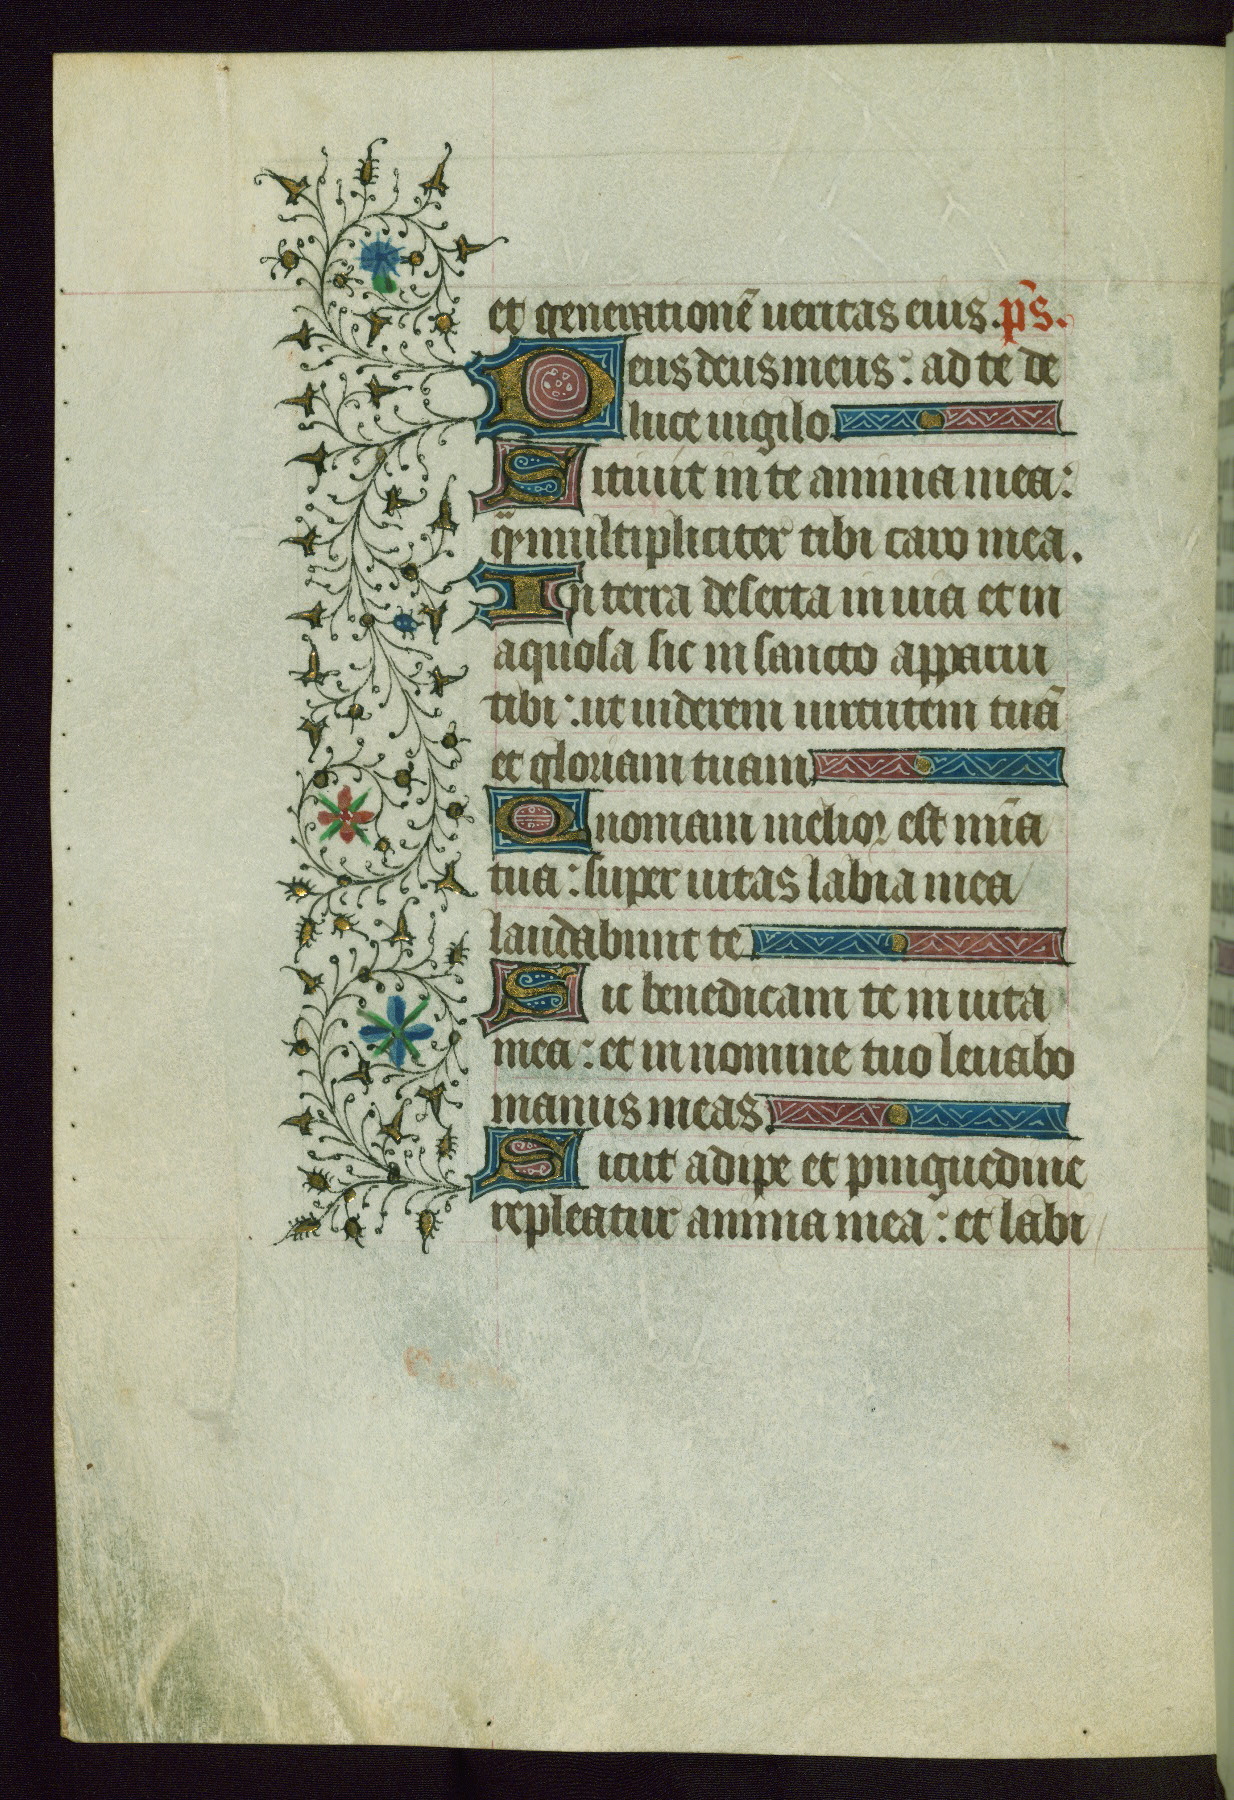 et generationē ueritas eius. p̄s.
Deus deus meus: ad te de
luce uigilo.
Sitiuit in te anima mea:
q̄m multipliciter tibi caro mea.
In terra deserta in uia et in
aquosa sic in sancto apparui
tibi: ut uiderem uirtutem tuā
et gloriam tuam
Quoniam melior est mīa
tua: super uitas labia mea
laudabunt te
Sic benedicam te in uita
mea: et in nomine tuo leuabo
manus meas.
Sicut adipe et pinguedine
repleatur anima mea: et labi